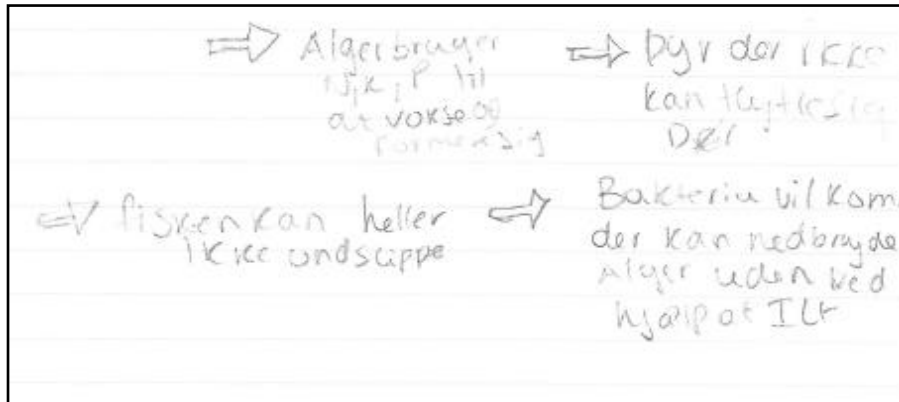 ⇒ Alger bruger
N, K, P til
at vokse og
formere sig
⇒ Dyr der ikke
kan flytte sig
Dør
⇒ fisken kan heller
ikke undslippe
⇒ Bakterie vil kom
der kan nedbryde
Alger uden ved
hjælp af ILt